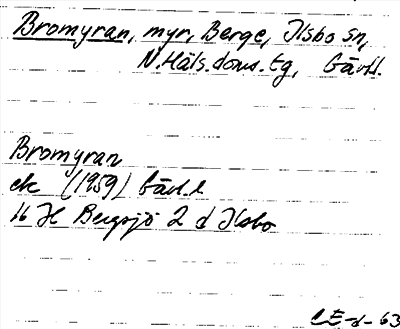 Bromyran, myr, Berge, Ilsbo sn,
N. Häls. doms. tg, Gävl.
Bromyran
ek (1959) Gävl. l
16 H Bergsjö 2 d Ilsbo
63